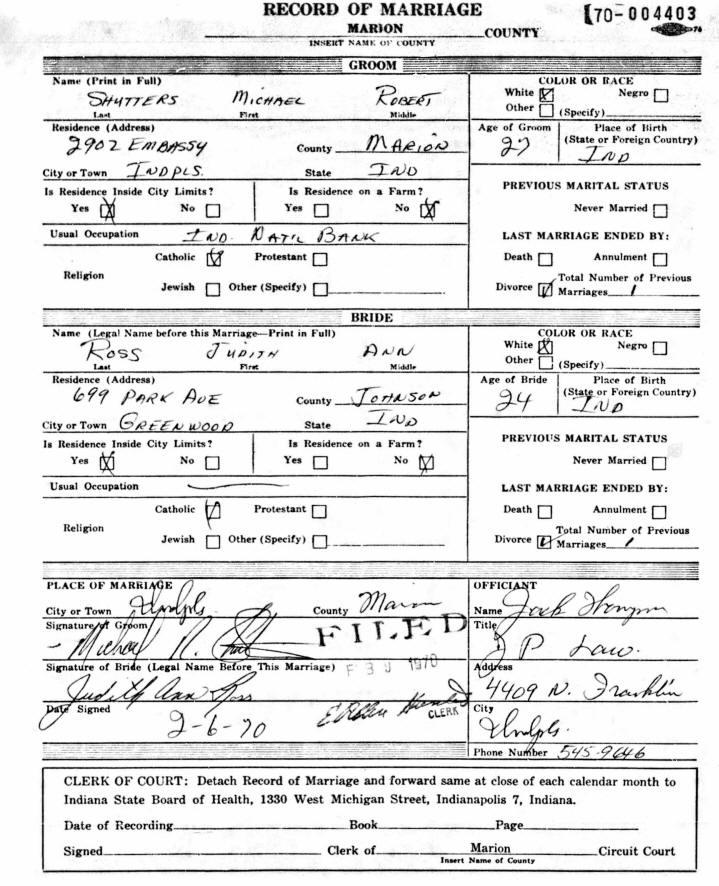 RECORD OF MARRIAGE
[70-004403
MARION COUNTY
INSERT NAME OF COUNTY
GROOM
Name (Print in Full)
SHUTTERS MICHAEL ROBERT
Last First Middle
COLOR OR RACE
White [X] Negro
Other (Specify)
Residence (Address)
2902 EMBASSY County MARION
City or Town INDPLS. State IND
Age of Groom 27
Place of Birth
(State or Foreign Country)
IND
Is Residence Inside City Limits?
Yes [X] No
Is Residence on a Farm?
Yes No [X]
PREVIOUS MARITAL STATUS
Never Married
Usual Occupation IND. NAT'L BANK
LAST MARRIAGE ENDED BY:
Death Annulment
Divorce [✓] Total Number of Previous
Marriages 1
Religion
Catholic [X] Protestant
Jewish Other (Specify)
BRIDE
Name (Legal Name before this Marriage—Print in Full)
ROSS JUDITH ANN
Last First Middle
COLOR OR RACE
White [X] Negro
Other (Specify)
Residence (Address)
699 PARK AVE County JOHNSON
City or Town GREENWOOD State IND
Age of Bride 24
Place of Birth
(State or Foreign Country)
IND
Is Residence Inside City Limits?
Yes [X] No
Is Residence on a Farm?
Yes No [X]
PREVIOUS MARITAL STATUS
Never Married
Usual Occupation
LAST MARRIAGE ENDED BY:
Death Annulment
Divorce [✓] Total Number of Previous
Marriages 1
Religion
Catholic [✓] Protestant
Jewish Other (Specify)
PLACE OF MARRIAGE
City or Town Indpls. County Marion
Signature of Groom
Michael R.
FILED
Signature of Bride (Legal Name Before This Marriage)
1970
Judith Ann Ross
Date Signed
2-6-70
CLERK
OFFICIANT
Name Jack
Title
J P Law.
Address
4409 N. Franklin
City
Indpls.
Phone Number 545-9646
CLERK OF COURT: Detach Record of Marriage and forward same at close of each calendar month to
Indiana State Board of Health, 1330 West Michigan Street, Indianapolis 7, Indiana.
Date of Recording Book Page
Signed Clerk of Marion Circuit Court
Insert Name of County